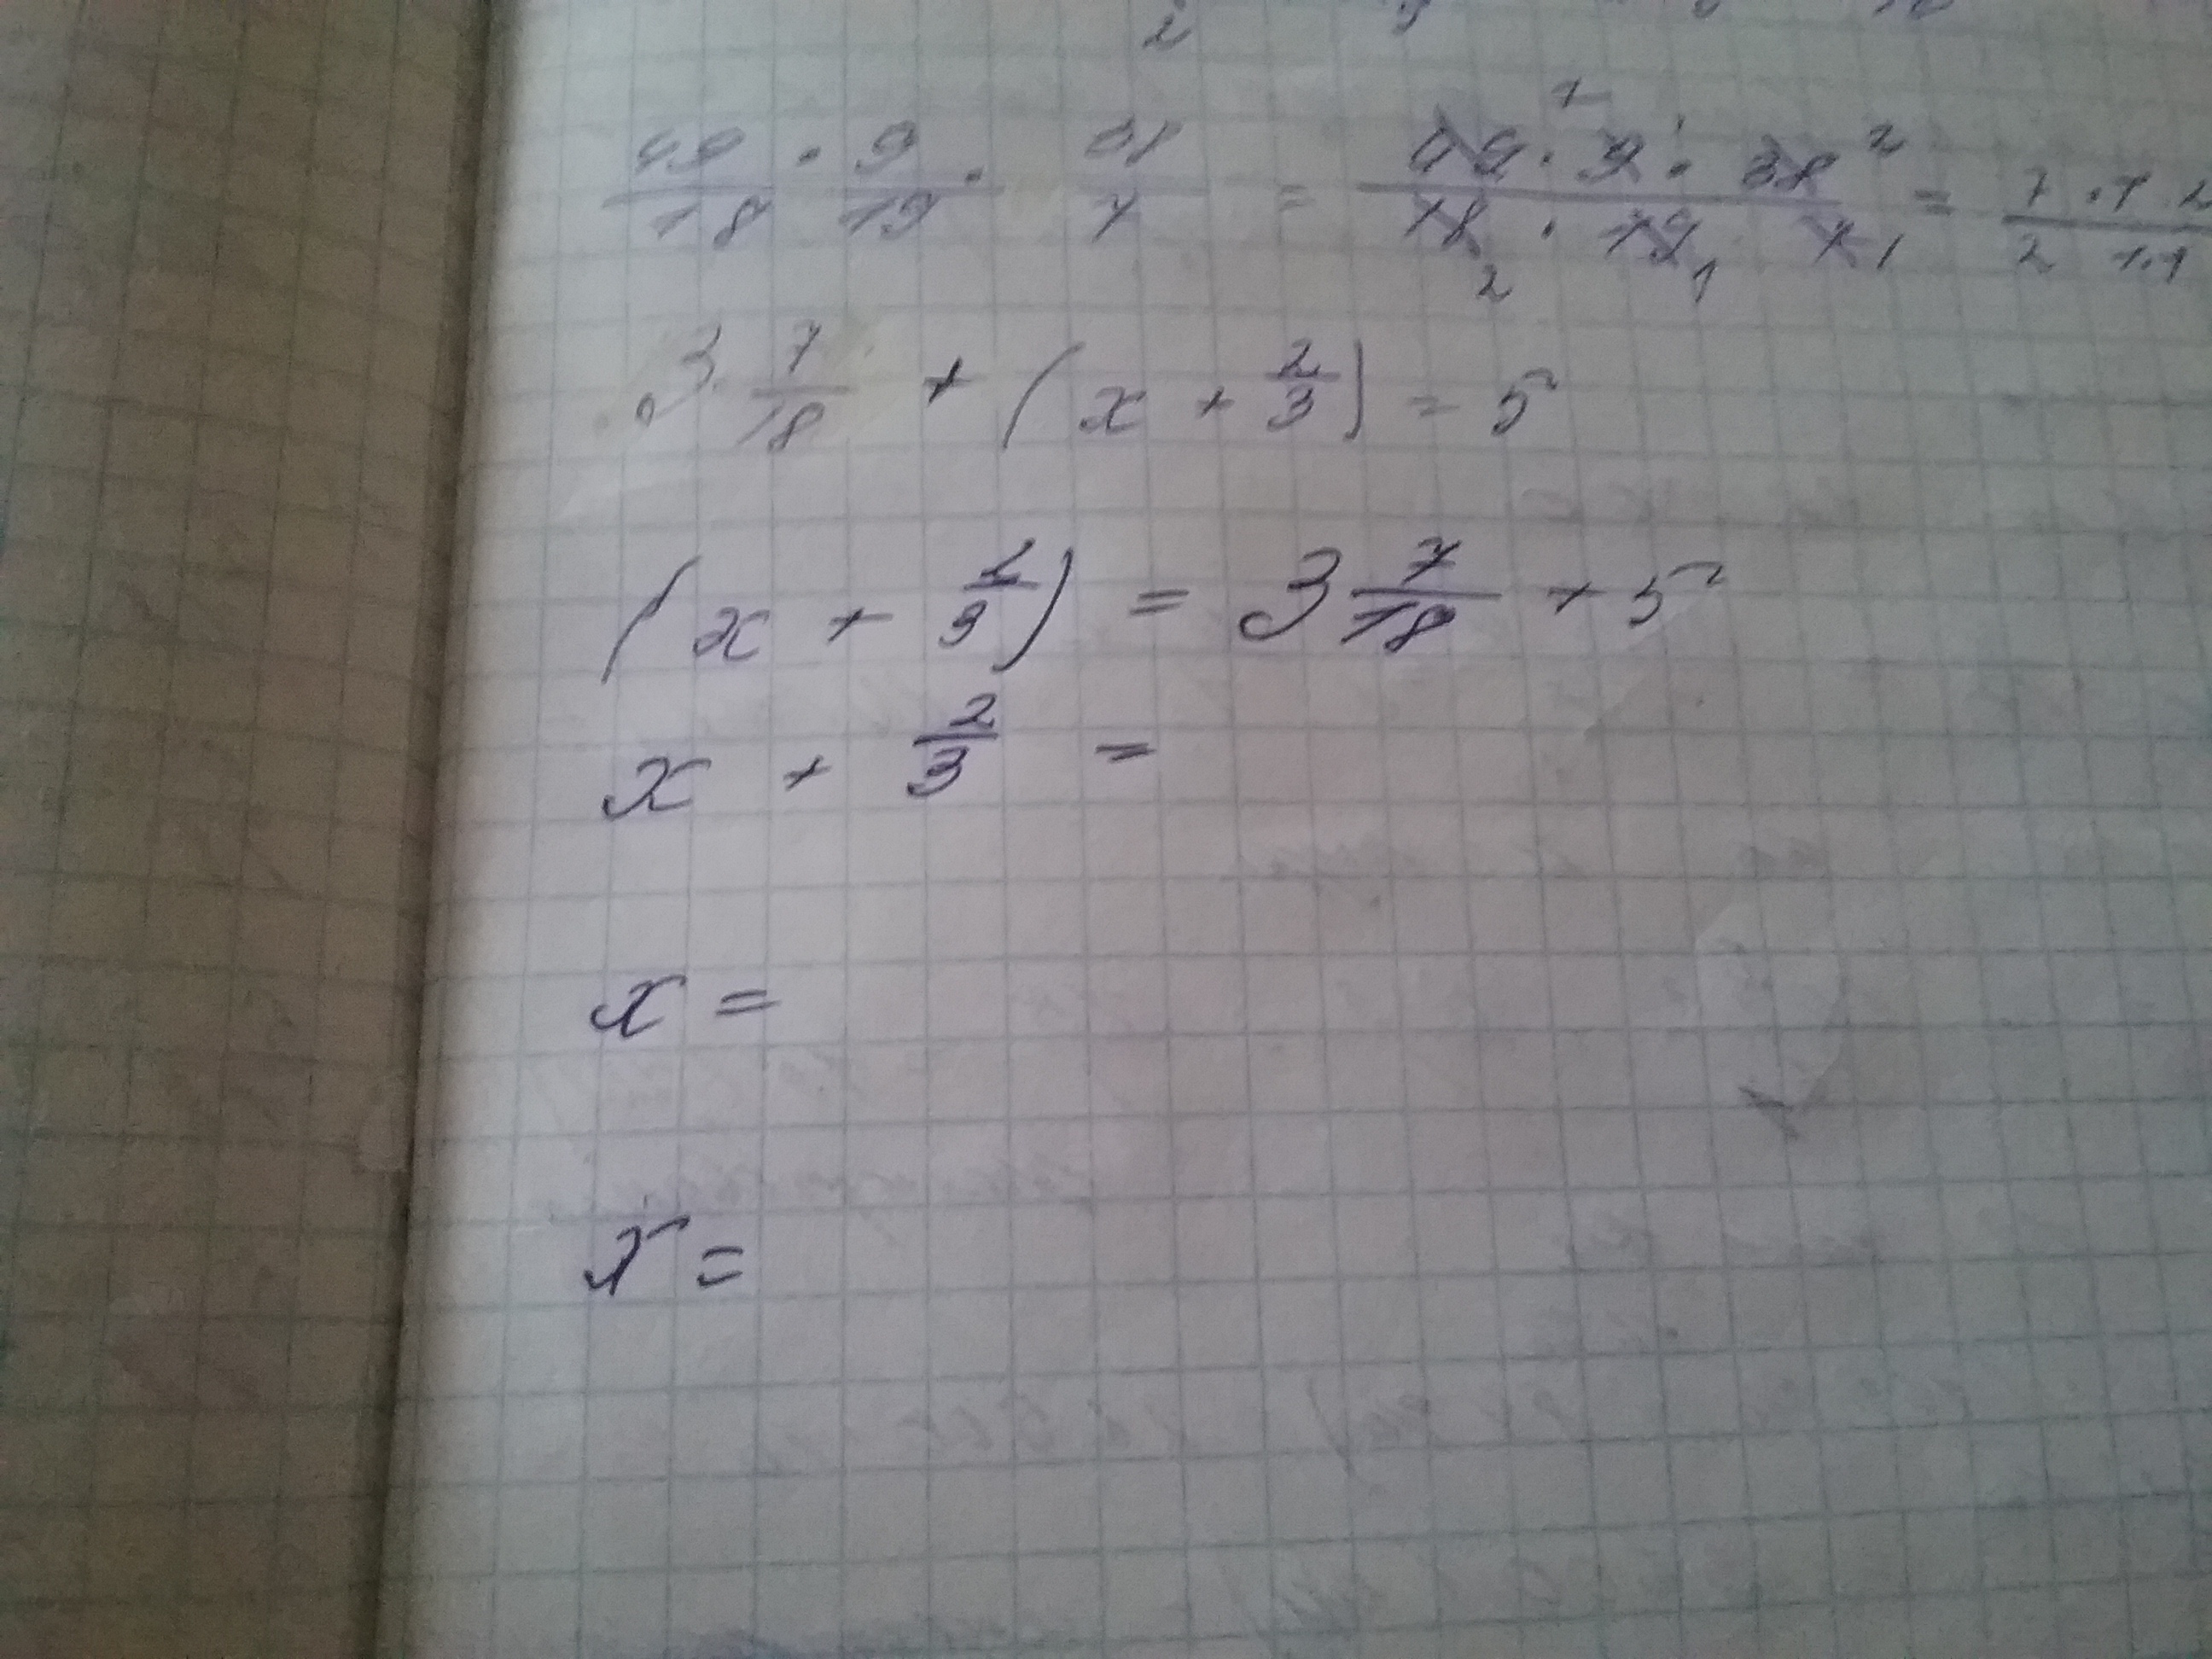 49/18 · 9/19 · 38/7 = 49 · 9 · 38 / 18 · 19 · 7 = 7 · 1 · 2 / 2 · 1 · 1
3 7/18 + (x + 2/3) = 5
(x + 2/3) = 3 7/18 + 5
x + 2/3 =
x =
x =